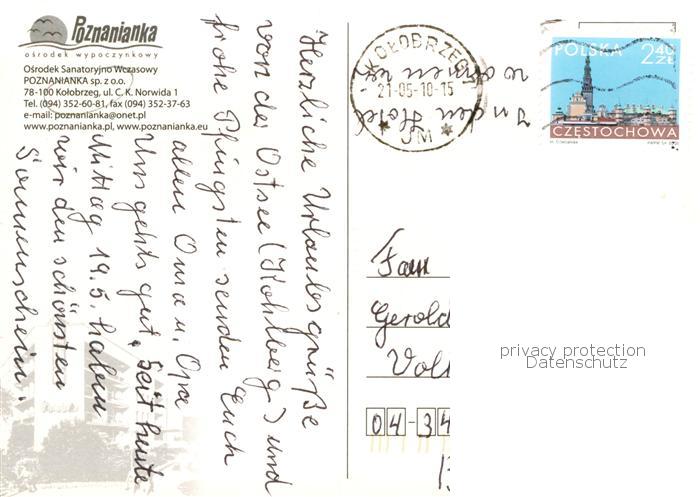 Poznanianka
ośrodek wypoczynkowy
Ośrodek Sanatoryjno Wczasowy
POZNANIANKA sp. z o.o.
78-100 Kołobrzeg, ul. C. K. Norwida 1
Tel. (094) 352-60-81, fax (094) 352-37-63
e-mail: poznanianka@onet.pl
www.poznanianka.pl, www.poznanianka.eu
Herzliche Urlaubsgrüße
von der Ostsee (Kohlberg) und
frohe Pfingsten senden Euch
allen Oma u. Opa
Uns gehts gut. Seit heute
Mittag 19.5. haben
wir den schönsten
Sonnenschein.
KOŁOBRZEG 1
21-05-10-15
UM
In den Hotel
wohnen wir
POLSKA 2,40 ZŁ
CZĘSTOCHOWA
Fam
Gerold
Volk
privacy protection
Datenschutz
04-34